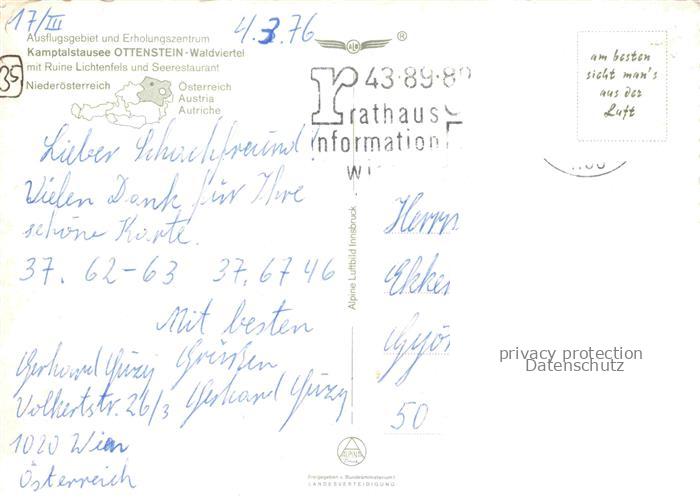 17/III
4.3.76
35
Ausflugsgebiet und Erholungszentrum
Kamptalstausee OTTENSTEIN-Waldviertel
mit Ruine Lichtenfels und Seerestaurant
Niederösterreich
Österreich
Austria
Autriche
®
43·89·89
rathaus
information
wi
am besten
sieht man's
aus der
Luft
Lieber Schachfreund!
Vielen Dank für Ihre
schöne Karte.
37. 62-63 37. 67 46
Mit besten
Grüßen
Gerhard
Gerhard
Volkertstr. 26/3
1020 Wien
Österreich
Alpine Luftbild Innsbruck
Herrn
Ekke
Győ
50
privacy protection
Datenschutz
ALPINE
Freigegeben v. Bundesministerium f.
LANDESVERTEIDIGUNG